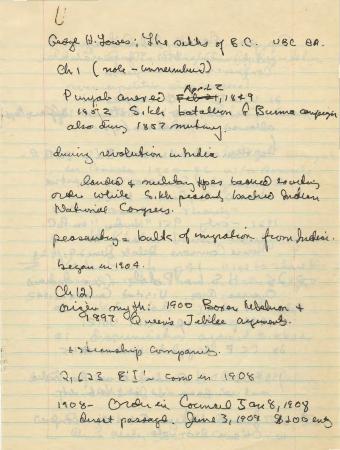 George H. Lowes: The Sikhs of B.C. UBC BA.
Ch 1 (note - unnumbered)
April 2
Punjab annexed Feb 21, 1849
1852 Sikh batallion of Burma campaign
also during 1857 mutiny
during revolution in India
landed & military types backed existing
order while Sikh peasants backed Indian
National Congress.
peasantry = bulk of migration from India.
began in 1904.
Ch (2)
origin myth: 1900 Boxer Rebellion &
1897 Queen's Jubilee arguments.
+ steamship companies.
2,623 E I's came in 1908
1908 - Order in Council Jan 8, 1908
direct passage. June 3, 1909 $200 entry